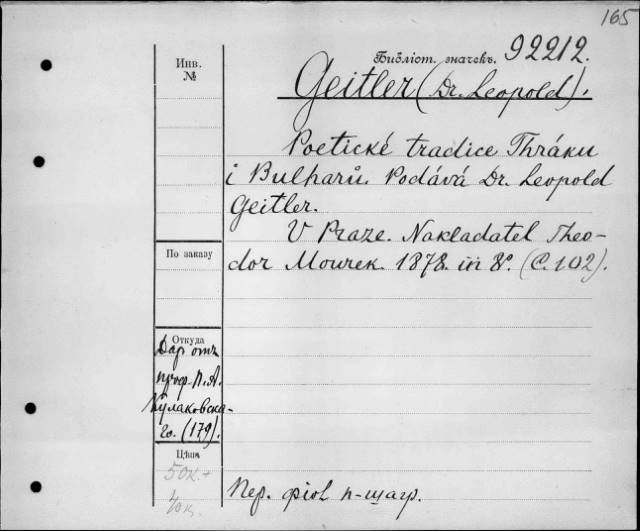 165
Инв.
№
Библіот. значекъ. 92212.
Geitler (Dr. Leopold).
Poetické tradice Thráku
i Bulharů. Podává Dr. Leopold
Geitler.
V Praze. Nakladatel Theo-
dor Mourek. 1878. in 8°. (C. 102).
По заказу
Откуда
Даръ отъ
проф. П. А.
Кулаковска-
го. (179).
Цѣна
50к. +
40к.
Пер. фіол п-шагр.